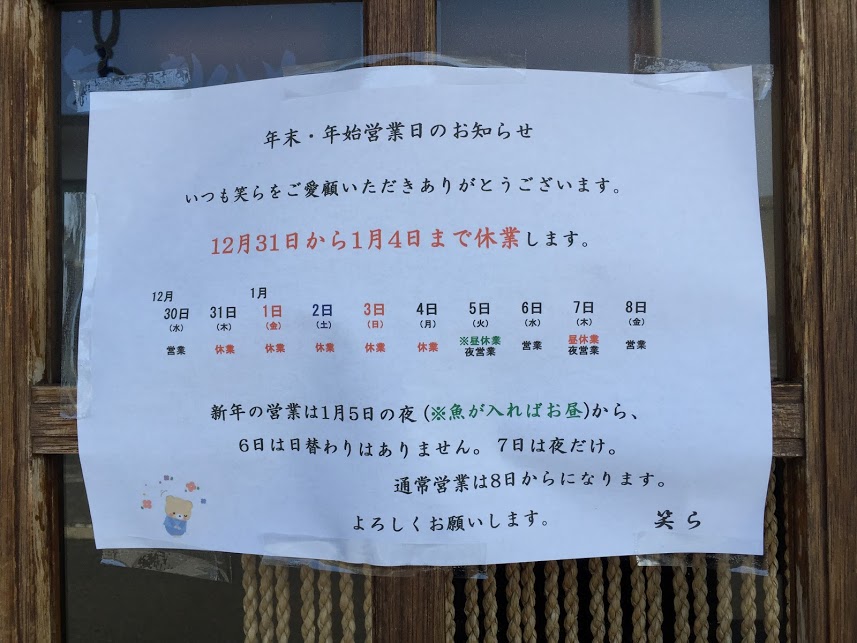 年末・年始営業日のお知らせ
いつも笑らをご愛顧いただきありがとうございます。
12月31日から1月4日まで休業します。
12月 1月
30日 31日 1日 2日 3日 4日 5日 6日 7日 8日
(水) (木) (金) (土) (日) (月) (火) (水) (木) (金)
営業 休業 休業 休業 休業 休業 ※昼休業 営業 昼休業 営業
夜営業 夜営業
新年の営業は1月5日の夜(※魚が入ればお昼)から、
6日は日替わりはありません。 7日は夜だけ。
通常営業は8日からになります。
よろしくお願いします。 笑ら